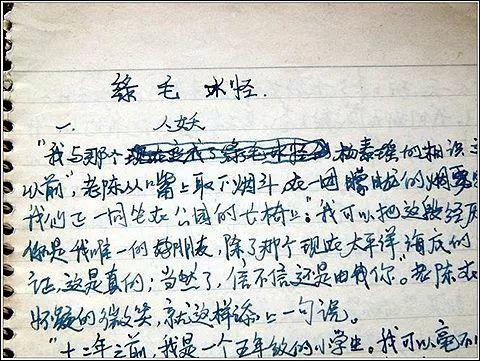 绿毛水怪.
一. 人妖
"我与那个杨素瑶的相识
以前",老陈从嘴上取下烟斗,在一团朦胧的烟雾
我们正一同坐在公园的长椅上:"我可以把这段经历
你是我唯一的好朋友,除了那个现在太平洋海底的
证,这是真的;当然了,信不信还是由我你。"老陈在
的微笑,就这样添上一句说。
"十二年之前,我是一个五年级的小学生。我可以毫不